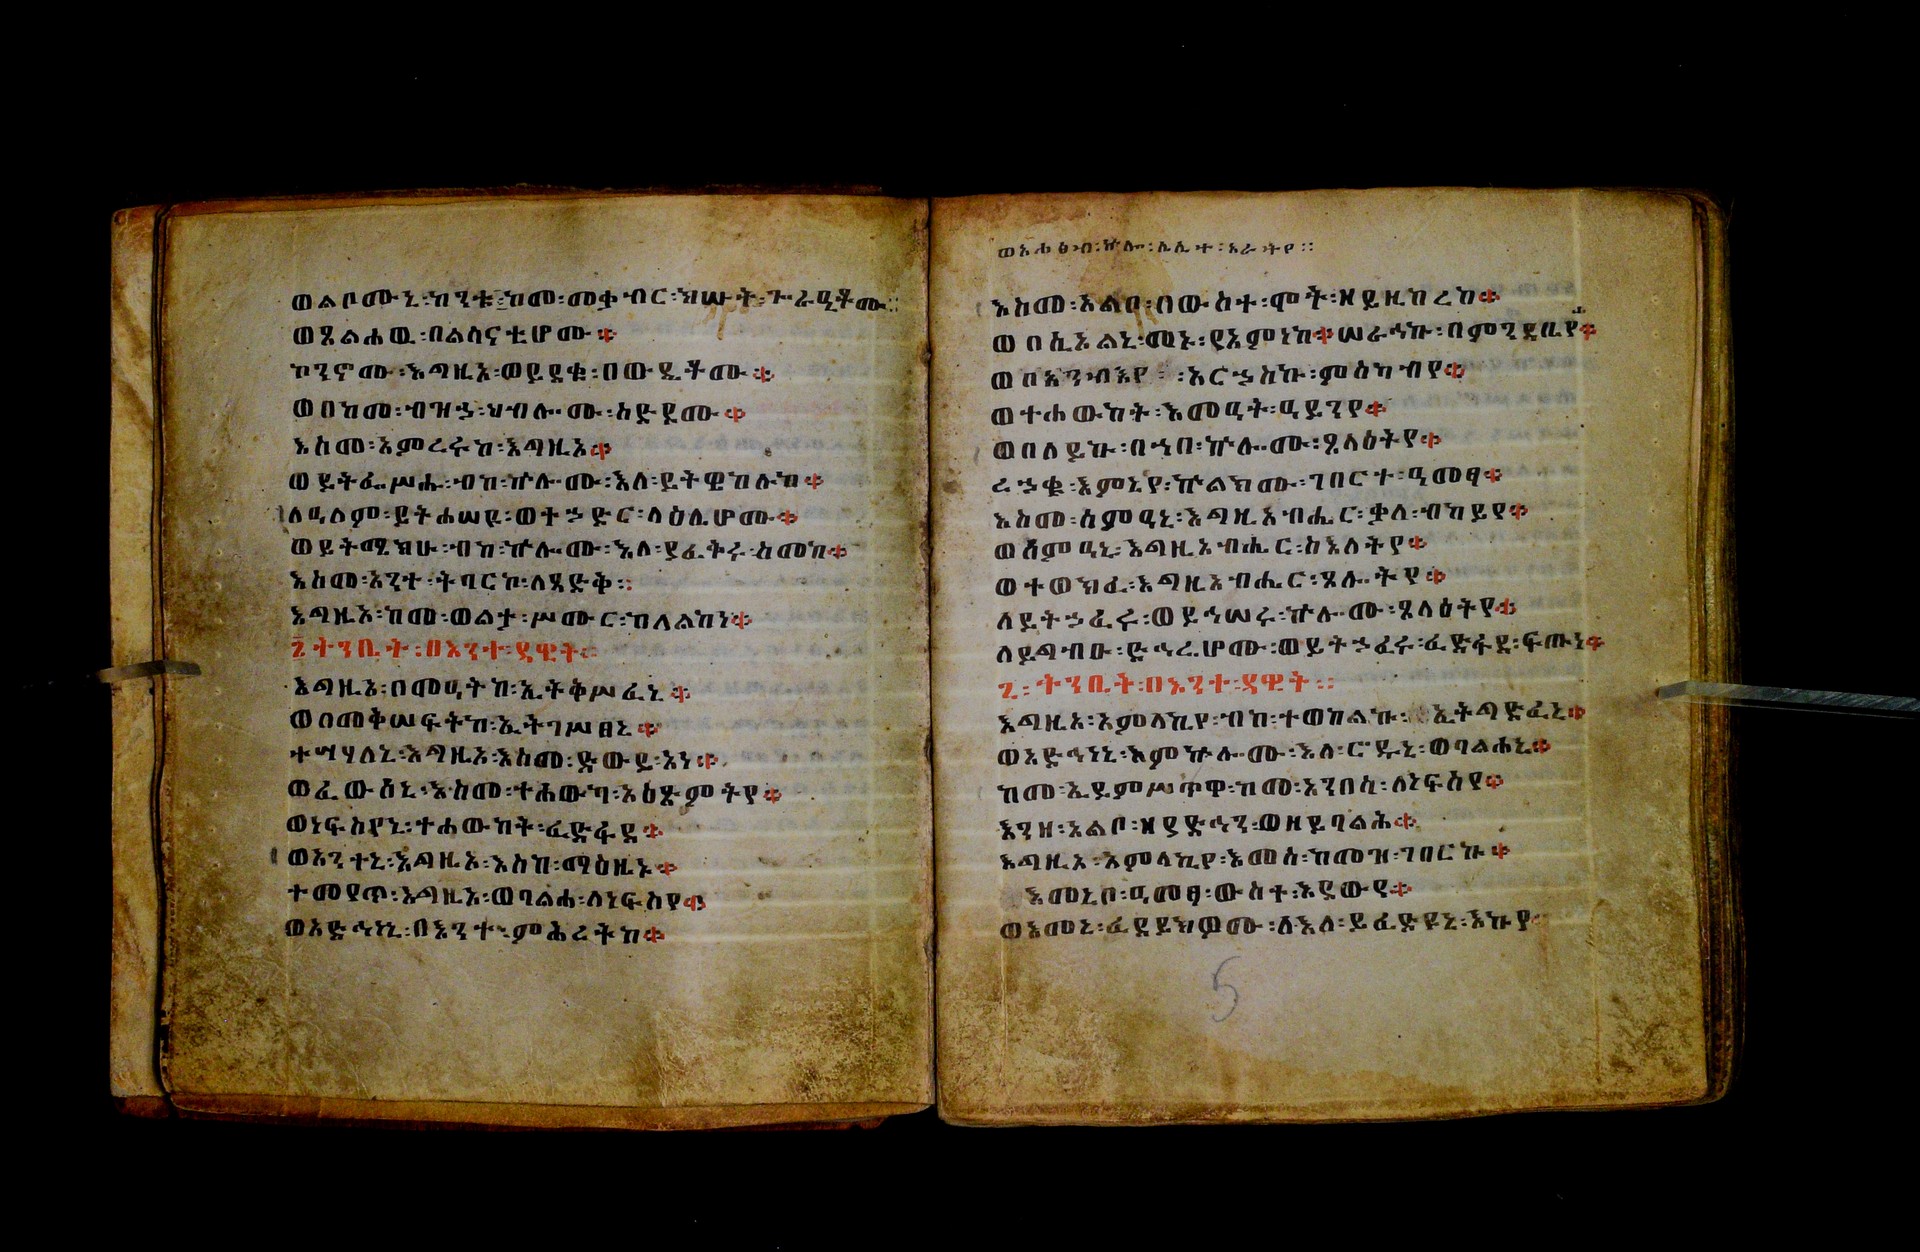 ወልቦሙኒ፡ከንቱ፡ከመ፡መቃብር፡ክሡት፡ጉራዒቶሙ፡፡
ወጼልሐዉ፡በልሳናቲሆሙ፨
ኮንኖሙ፡እግዚኦ፡ወይደቁ፡በውዴቶሙ፨
ወበከመ፡ብዝኃ፡ህብሉ፡ሙ፡ስድዶሙ፨
እስመ፡አምረሩከ፡እግዚኦ፨
ወይትፌሥሑ፡ብከ፡ኵሎ፡ሙ፡እለ፡ይትዌከሉከ፨
ለዓለም፡ይትሐሠዩ፡ወተኃድር፡ላዕሌሆሙ፨
ወይትሜክሁ፡ብከ፡ኵሎ፡ሙ፡እለ፡ያፈቅሩ፡ስመከ፨
እስመ፡አንተ፡ትባርኮ፡ለጻድቅ፡፡
እግዚኦ፡ከመ፡ወልታ፡ሥሙር፡ከለልከነ፨
፮ትንቢት፡በእንተ፡ዳዊት፡፡
እግዚኦ፡በመዓትከ፡ኢትቅሥፈኒ፨
ወበመቅሠፍትከ፡ኢትገሥፀኒ፨
ተሣሃለኒ፡እግዚኦ፡እስመ፡ድውይ፡አነ፨
ወፈውሰኒ፡እስመ፡ተሐውካ፡አዕፄምትየ፨
ወነፍስየኒ፡ተሐውከት፡ፈድፋደ፨
ወአንተኒ፡እግዚኦ፡እስከ፡ማዕዜኑ፨
ተመየጥ፡እግዚኦ፡ወባልሓ፡ለነፍስየ፨
ወአድኅነኒ፡በእንተ፡ምሕረትከ፨
ወአሐፅብ፡ኵሎ፡ሌሊተ፡አራትየ፡፡
እስመ፡አልቦ፡በውስተ፡ሞት፡ዘይዜከረከ፨
ወበሲኦልኒ፡መኑ፡የአምነከ፨ሠራኅኩ፡በምንዳቤየ፨
ወበአንብዕየ፡አርኃስኩ፡ምስካብየ፨
ወተሐውከት፡እመዓት፡ዓይንየ፨
ወበለይኩ፡በኀበ፡ኵሎ፡ሙ፡ጸላዕትየ፨
ረኃቁ፡እምኒየ፡ኵልክሙ፡ገበርተ፡ዓመፃ፨
እስመ፡ሰምዓኒ፡እግዚአብሔር፡ቃለ፡ብካይየ፨
ወሰምዓኒ፡እግዚአብሔር፡ስእለትየ፨
ወተወክፈ፡እግዚአብሔር፡ጸሎ፡ትየ፨
ለይትኃፈሩ፡ወይኅሠሩ፡ኵሎ፡ሙ፡ጸላዕትየ፨
ለይግብዑ፡ድኅሬሆሙ፡ወይትኃፈሩ፡ፈድፋደ፡ፍጡነ፨
፯፡ትንቢት፡በእንተ፡ዳዊት፡፡
እግዚኦ፡አምላኪየ፡ብከ፡ተወከልኩ፡ኢትግድፈኒ፨
ወአድኅነኒ፡እምኵሎ፡ሙ፡እለ፡ሮዱኒ፡ወባልሐኒ፨
ከመ፡ኢይምሥጥዋ፡ከመ፡አንበሳ፡ለነፍስየ፨
እንዘ፡አልቦ፡ዘያድኅን፡ወዘይባልሕ፨
እግዚኦ፡አምላኪየ፡እመሰ፡ከመዝ፡ገበርኩ፨
እመኒቦ፡ዓመፃ፡ውስተ፡እደውየ፨
ወእመኒ፡ፈደይክዎሙ፡ለእለ፡ይፈድዩኒ፡እኩየ፨
5